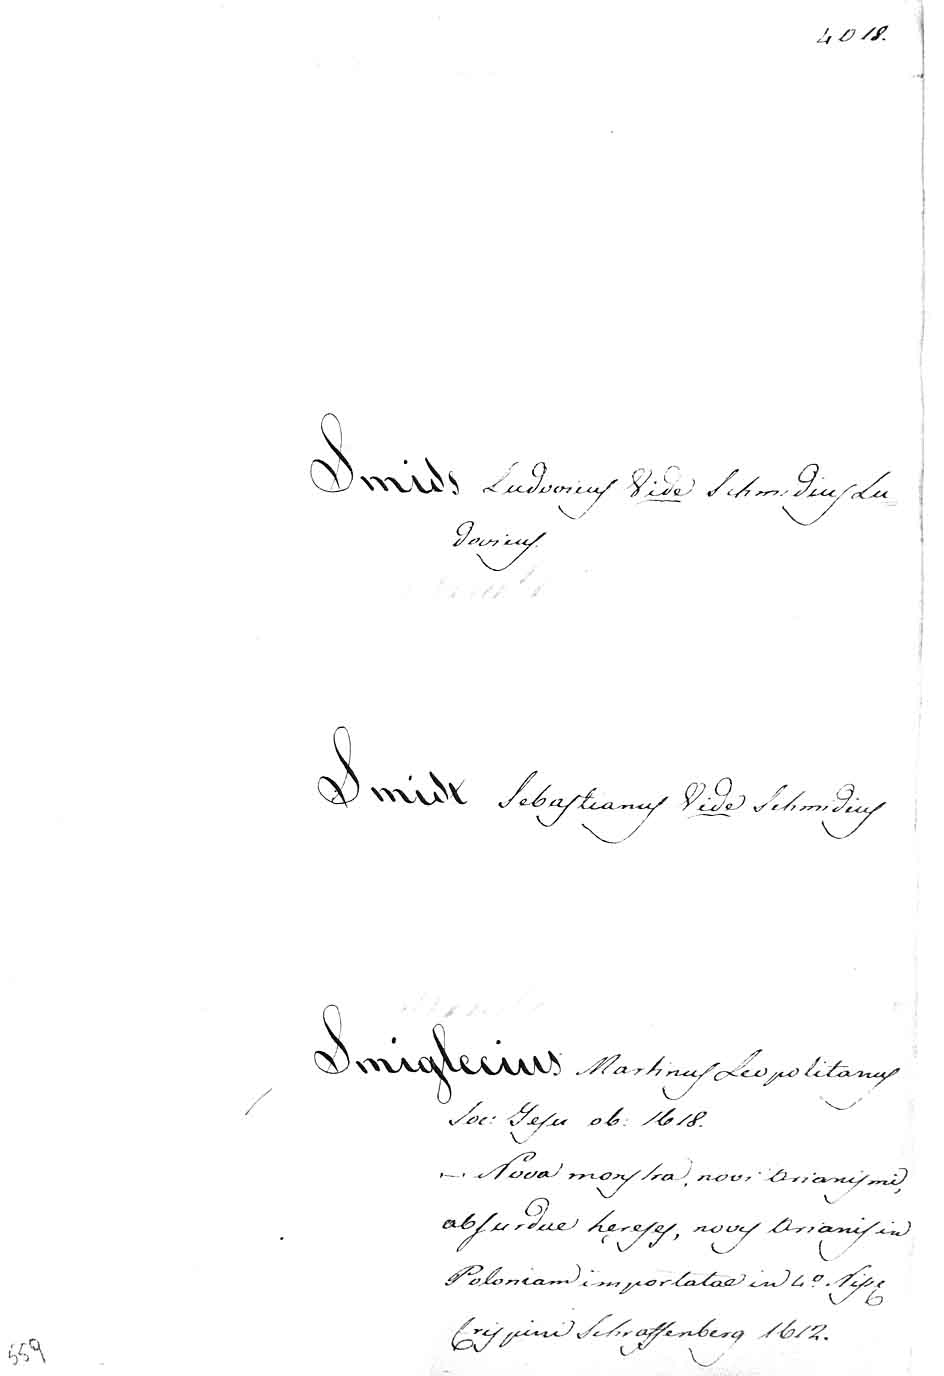 4018.
Smids Ludovicus Vide Schmidius Lu=
dovicus.
Smidt Sebastianus Vide Schmidius
Smiglecius Martinus Leopolitanus
Soc: Jesu ob: 1618.
— Nova monstra, novi Arianismi,
absurdae hęreses, novis Arianis in
Poloniam importatae in 4º
Crispini Schraffenberg 1612.
559